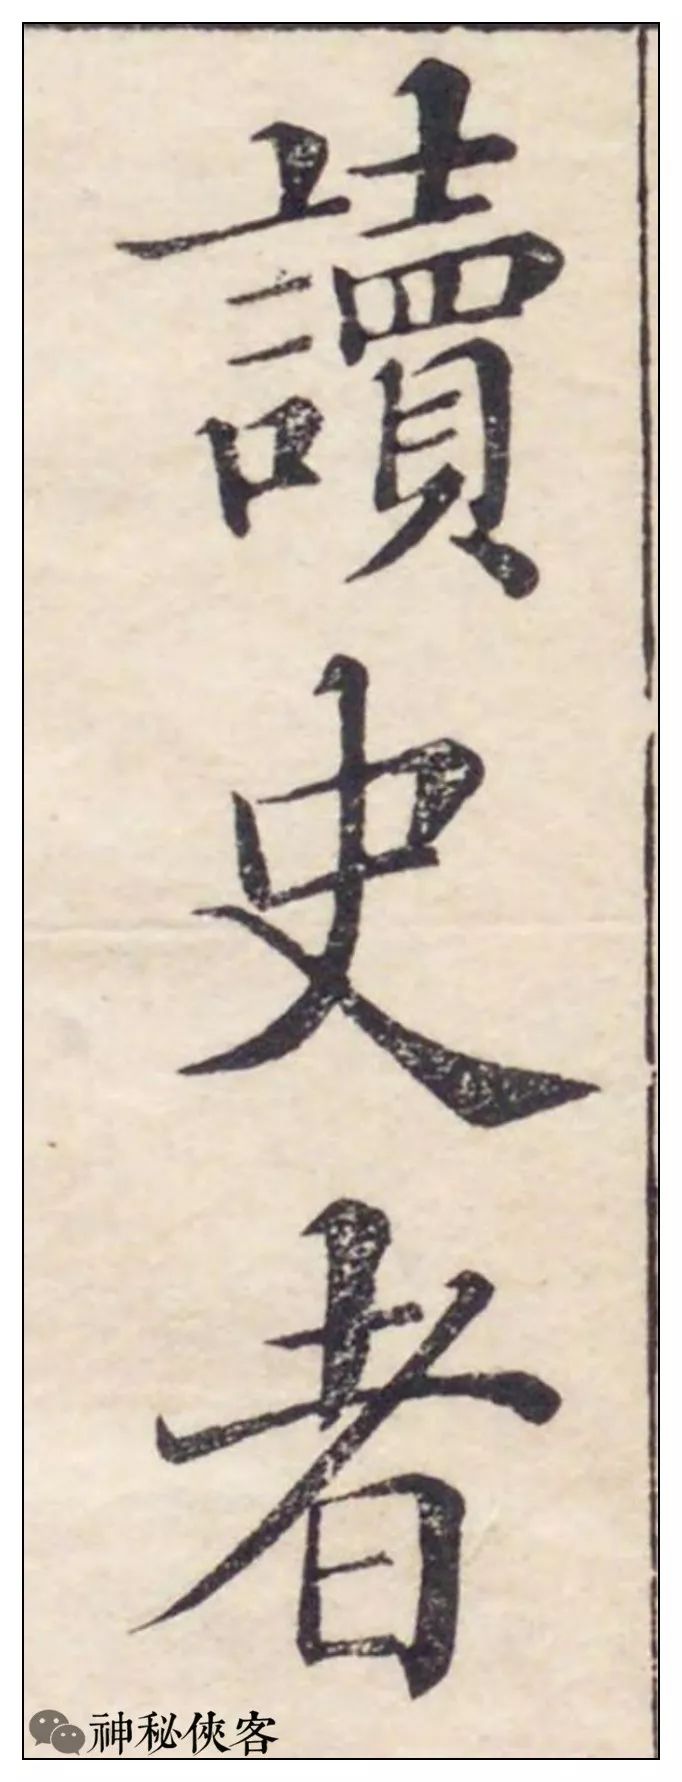 讀史者
神秘俠客